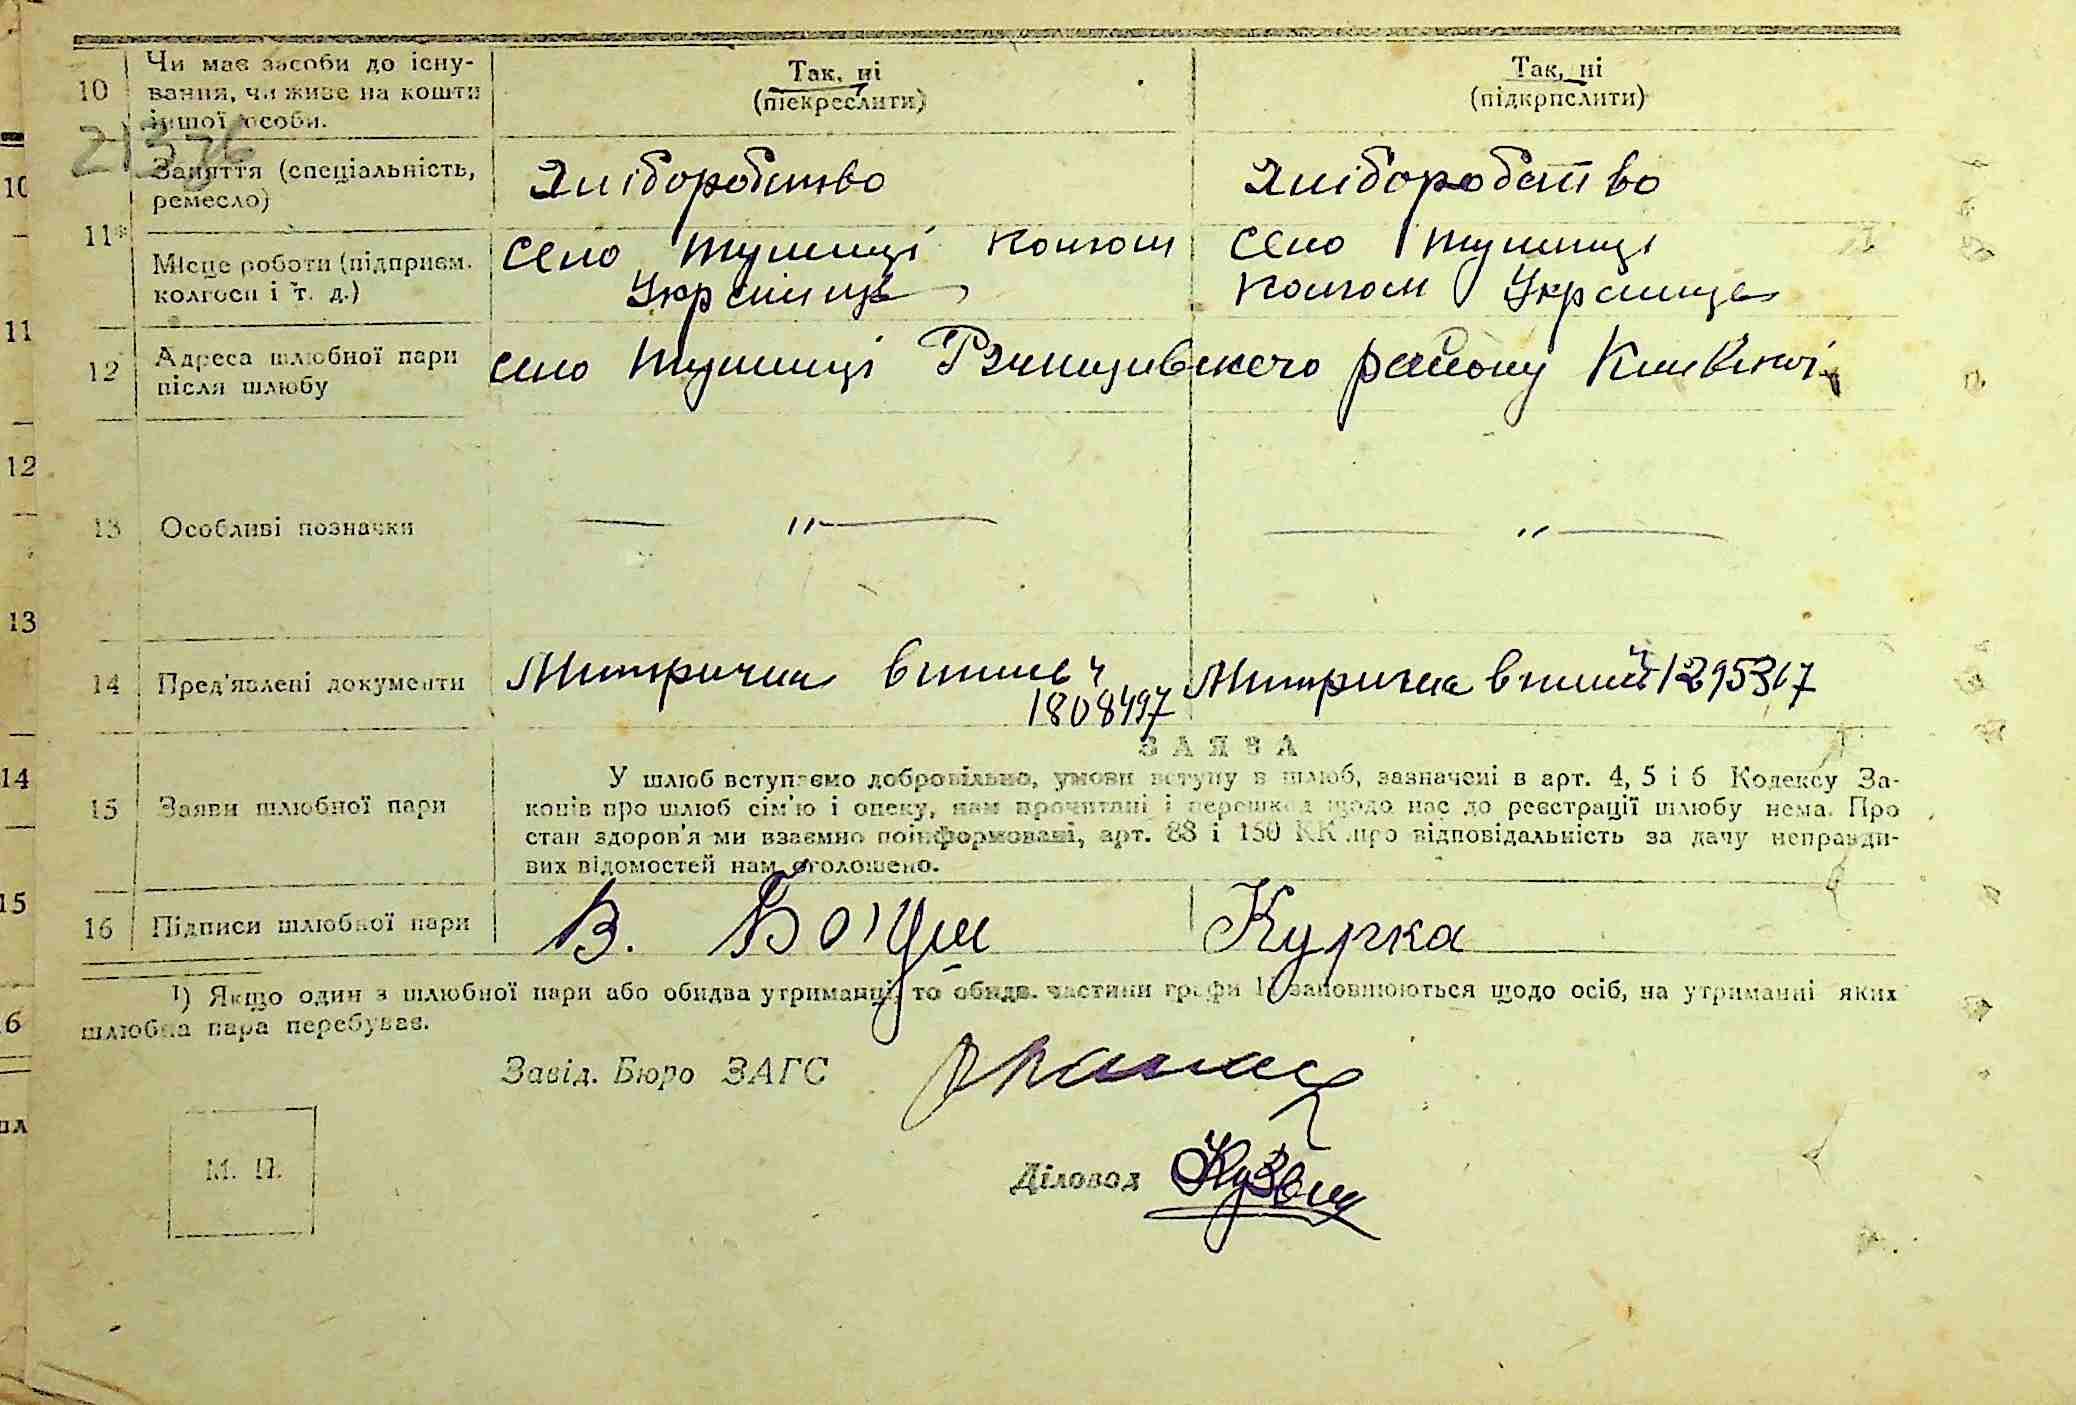 10 Чи має засоби до існу-
вання, чи живе на кошти
іншої особи.
Так, ні
(піекреслити)
Так, ні
(підкрпслити)
21336
11 Заняття (спеціальність,
ремесло)
Хліборобство
Хліборобство
Місце роботи (підприєм.
колгосп і т. д.)
село Тулинці колгосп
Українець
село Тулинці
колгосп Українець
12 Адреса шлюбної пари
після шлюбу
село Тулинці Ржищівского району Київської
13 Особливі позначки
— „ —
— „ —
14 Пред'явлені документи
Метрична випись ч
1808497
Метрична випись ч 1295367
ЗАЯВА
15 Заяви шлюбної пари
У шлюб вступаємо добровільно, умови вступу в шлюб, зазначені в арт. 4, 5 і 6 Кодексу За-
конів про шлюб сім'ю і опеку, нам прочитані і перешкод щодо нас до реєстрації шлюбу нема. Про
стан здоров'я ми взаємно поінформовані, арт. 88 і 150 КК про відповідальність за дачу неправди-
вих відомостей нам оголошено.
16 Підписи шлюбної пари
В.
Курка
1) Якщо один з шлюбної пари або обидва утриманці, то обидв. частини графи 11 заповнюються щодо осіб, на утриманні яких
шлюбна пара перебуває.
Завід. Бюро ЗАГС
М. П.
Діловод
10
11
12
13
14
15
6